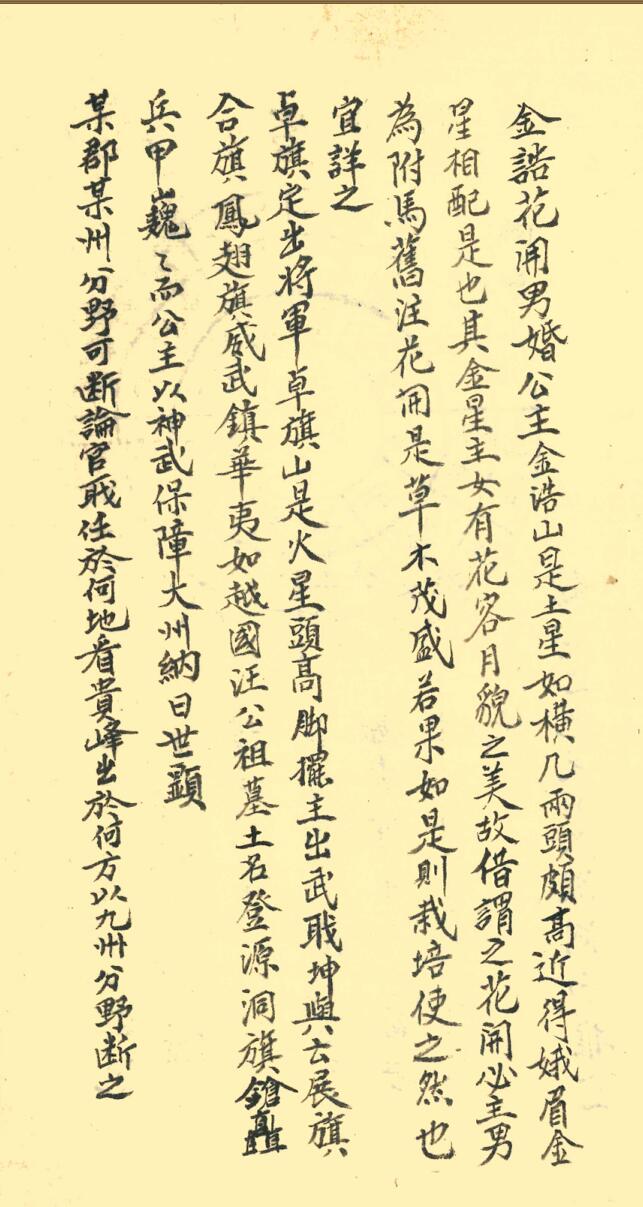 金誥花開男婚公主金誥山是土星如橫几兩頭頗高近得娥眉金
星相配是也其金星主女有花容月貌之美故借謂之花開必主男
為附馬舊注花開是草木茂盛若果如是則栽培使之然也
宜詳之
卓旗定出將軍卓旗山是火星頭高脚擺主出武職坤輿云展旗
合旗鳳翅旗威武鎮華夷如越國汪公祖墓土名登源洞旗鎗矗
兵甲巍〻而公主以神武保障大州納日世顯
某郡某州分野可断論官職任於何地看貴峰出於何方以九州分野断之